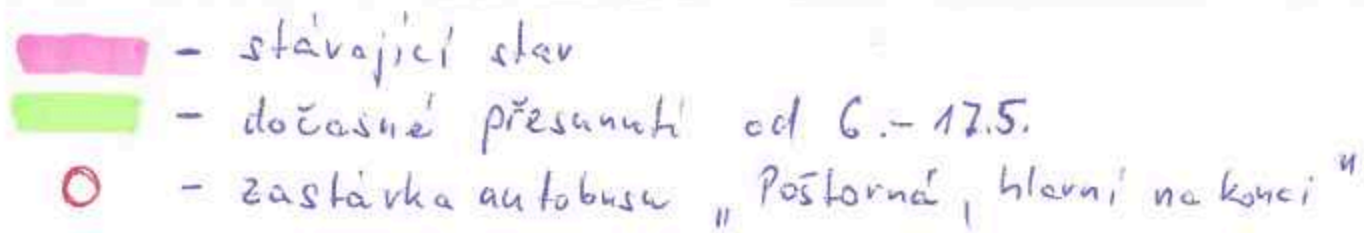 - stávající stav
- dočasné přesunutí od 6.-17.5.
- zastávka autobusu „Poštorná, hlavní na konci"